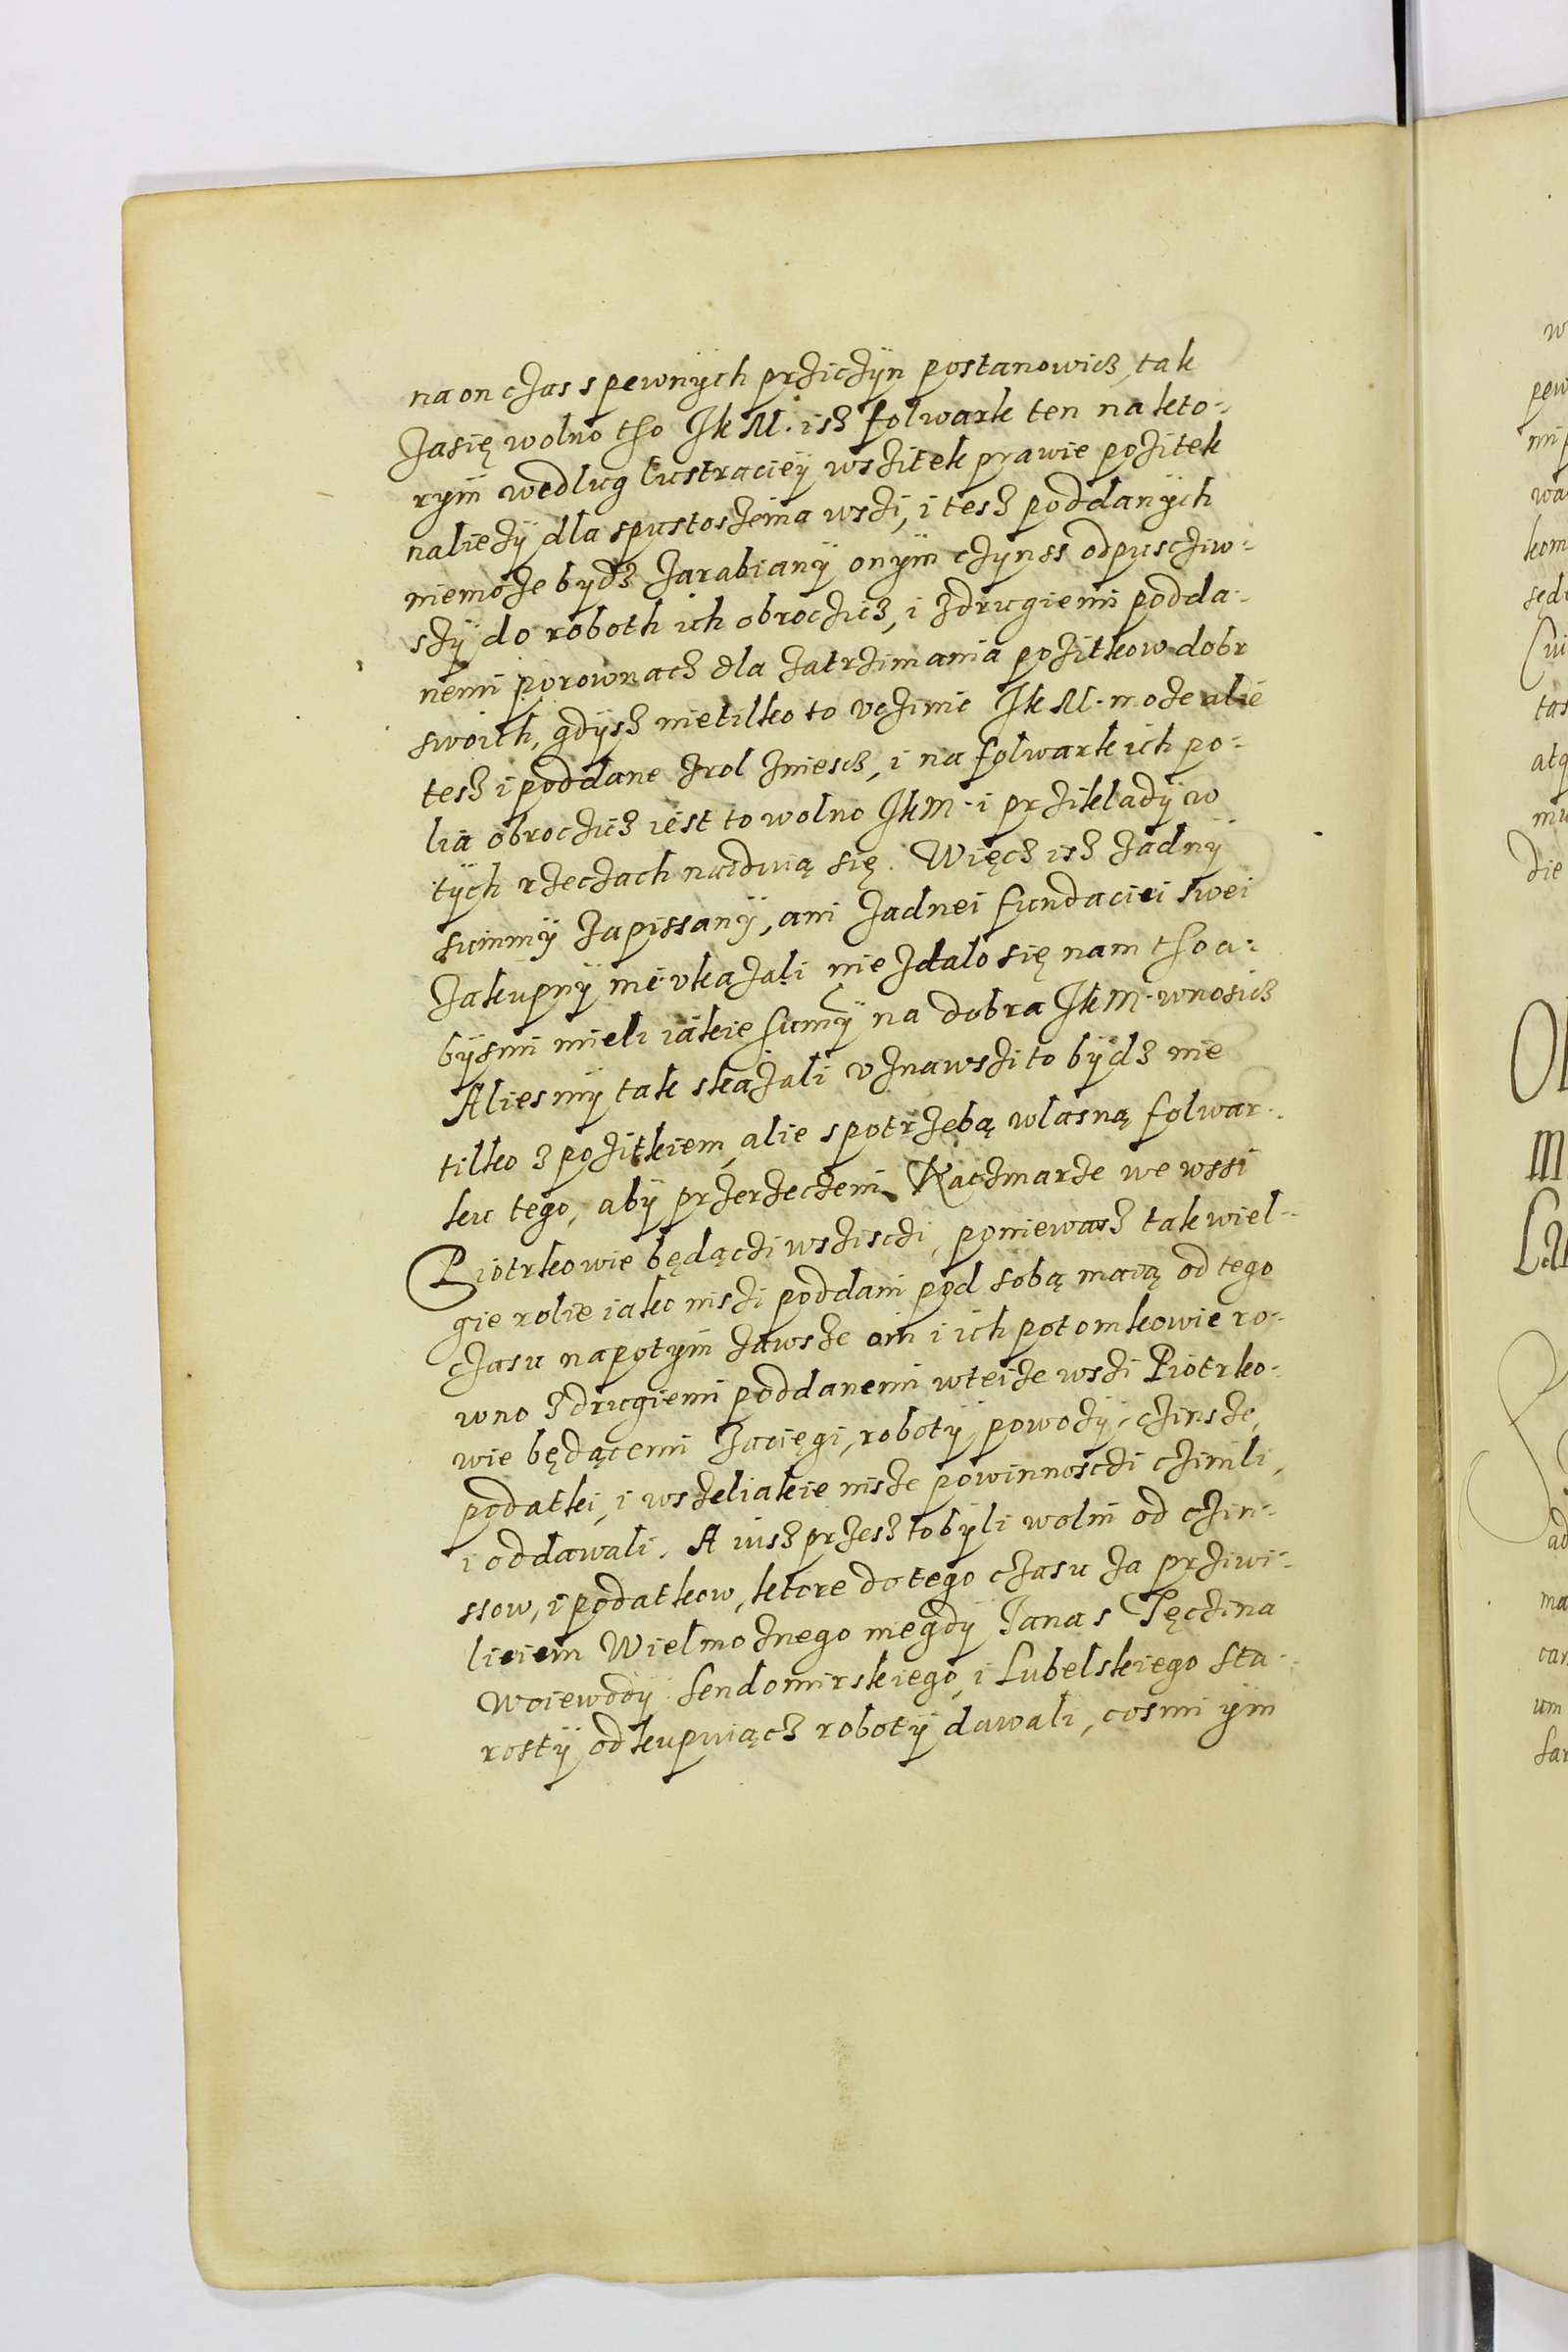 na on czas s pewnÿch prziczÿn postanowicz, tak
zasię wolno tho Jk M. isz folwark ten na kto-
rÿm wedlug lustracieÿ wszitek prawie pozitek
należÿ dla spustoszenia wszi, i tesz poddanÿch
niemoze bydz zarabianÿ onÿm czynss odpusciw-
szÿ do roboth ich obroczicz, i zdrugiemi podda-
nemi porownacz dla zatrzimania pozitkow dobr
swoich, gdÿsz nietilko to vczinic Jk M. moze alie
tesz i poddane zrol zniescz, i na folwark ich po-
lia obroczicz iest to wolno JkM. i przikladÿ w
tÿch rzeczach naiduią się. Więcz isz zadnÿ
summÿ zapissanÿ, ani zadnei fundaciei swei
zakupnÿ nie vkazali nie zdalo się nam tho a-
bÿsmi mieli iakie sumÿ na dobra JkM. wnosicz
Aliesmÿ tak skazali vznawszi to bÿdz nie
tilko z pozitkiem, alie s potrzebą wlasną folwar-
ku tego, abÿ przerzeczeni Kaczmarze we wssi
Piotrkowie będączi wszisczi, poniewasz tak wiel-
gie rolie iako inszi poddani pod sobą maią od tego
czasu napotÿm zawsze oni i ich potomkowie ro-
wno zdrugiemi poddanemi wteize wszi Piotrko-
wie będącemi zacięgi, robotÿ, powozÿ, czinsze,
podatki, i wszeliakie insze powinnosczi czinili,
i oddawali. A iusz przesz to bÿli wolni od czin-
ssow, i podatkow, ktore do tego czasu za prziwi-
lieiem Wielmoznego niegdÿ Jana s Tęczina
Woiewodÿ Sendomirskiego, i Lubelskiego sta-
rostÿ odkupuiącz robotÿ dawali, cosmi ÿm